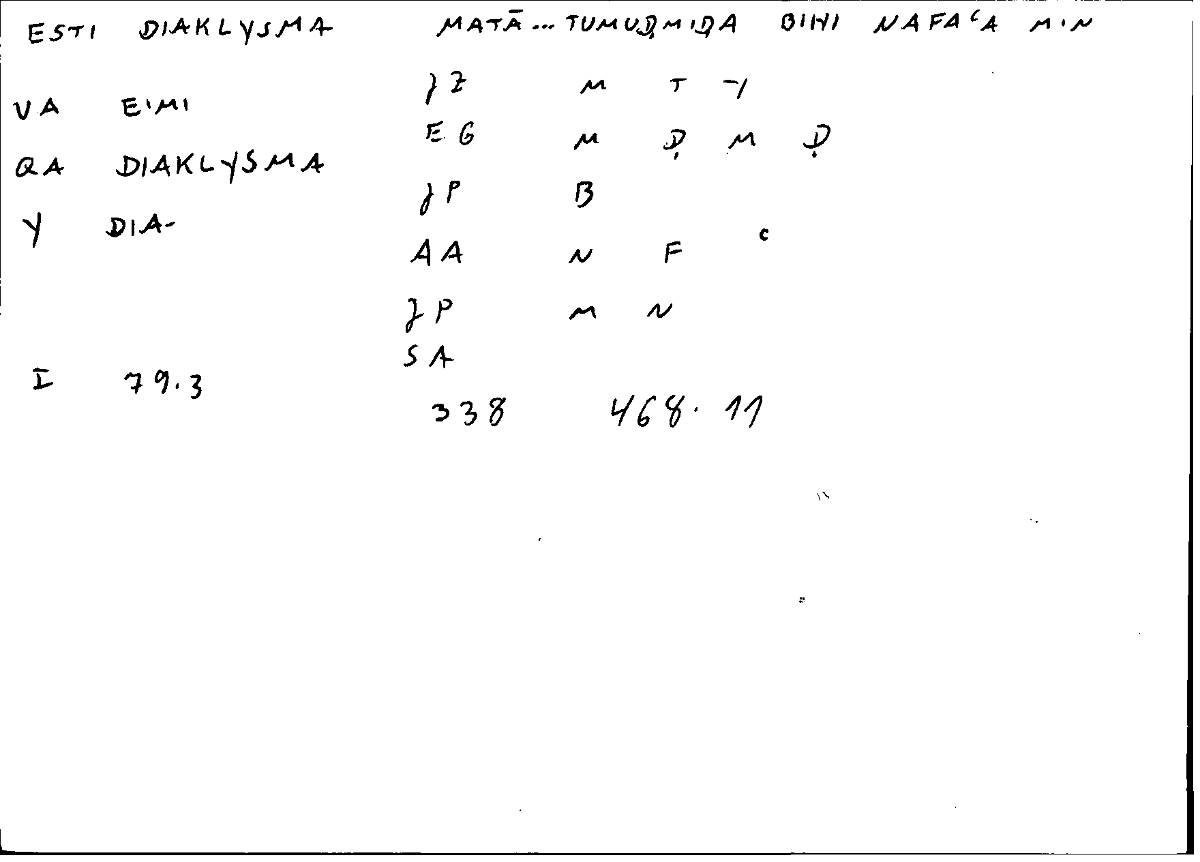 ESTI DIAKLYSMA MATĀ... TUMUḌMIḌA BIHI NAFAʿA MIN
JZ M T Y
VA EIMI
EG M Ḍ M Ḍ
QA DIAKLYSMA
JP B
Y DIA-
AA N F ʿ
JP M N
SA
I 79.3
338 468.11